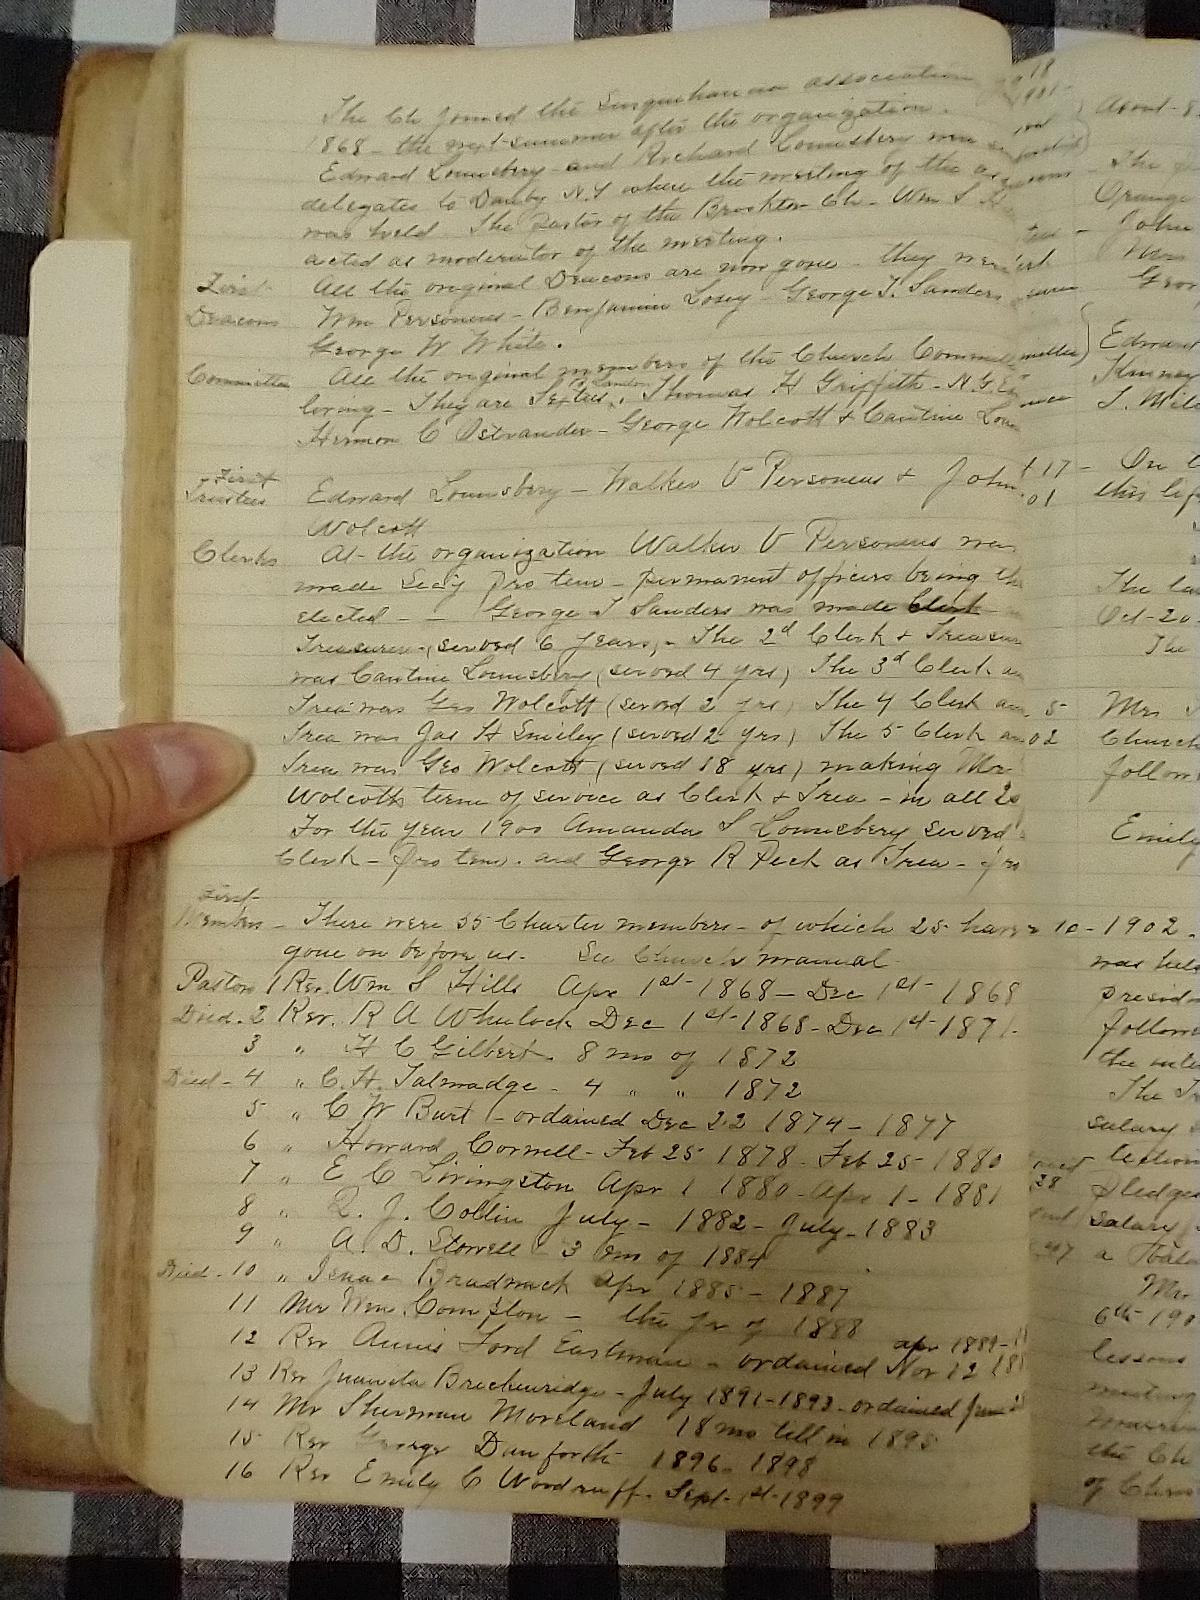 The Ch joined the Susquehanna association
1868 - the next summer after the organization.
Edward Lounsbery - and Richard Lounsbery were
delegates to Danby N.Y where the meeting of the
was held. The Pastor of the Brookton Ch - Wm S
acted as moderator of the meeting.
First All the original Deacons are now gone - they were
Deacons Wm Personeus - Benjamin Losey - George T. Sanders
George W White.
Committee All the original members of the Church Committee
loving - They are Thomas H Griffith - N.G.
Hermon C Ostrander - George Wolcott & Cantine
First
Trustees Edward Lounsbery - Walker V Personeus & John
Wolcott
Clerks At the organization Walker V Personeus was
made Sec'y pro tem - permanent officers being
elected - - George T Sanders was made Clerk
Treasurer - (served 6 years) - The 2d Clerk &
was Cantine Lounsbery (served 4 yrs) The 3d Clerk
Trea was Geo Wolcott (served 2 yrs) The 4 Clerk
Trea was Jas H Smiley (served 2 yrs) The 5 Clerk
Trea was Geo Wolcott (served 18 yrs) making Mr
Wolcotts term of service as Clerk & Trea - in all 20
For the year 1900 Amanda S Lounsbery served
Clerk - pro tem. and George R Peck as Trea - pro
First
Members - There were 55 Charter members - of which 25 have
gone on before us. See Church manual
Pastors 1 Rev. Wm S Hills Apr 1st - 1868 - Dec 1st - 1868
Died - 2 Rev. R A Wheelock Dec 1st - 1868 - Dec 1st - 1871
3 " H C Gilbert. 8 mo of 1872
Died - 4 " C. H. Talmadge - 4 " " 1872
5 " C W Burt - ordained Dec 22 1874 - 1877
6 " Howard Cornell - Feb 25 1878 - Feb 25 - 1880
7 " E C Livingston Apr 1 1880 - Apr 1 - 1881
8 " J. Collin July - 1882 - July - 1883
9 " A. D. Stowell - 3 mo of 1884
Died - 10 " Isaac Bradnack Apr 1885 - 1887
11 Mr Wm Compton - the yr of 1888
apr 1889 -
12 Rev Annis Ford Eastman - ordained Nov 12
13 Rev Juanita Breckenridge - July 1891 - 1893 - ordained June
14 Mr Sherman Moreland 18 mo till in 1895
15 Rev George Danforth 1896 - 1898
16 Rev Emily C Woodruff. Sept - 1st - 1899
About
The
Orange
John
Mrs
Edward
Kinney
On
this
The
Oct - 20
The
Mrs
Church
Emily
10 - 1902
was held
the
The
salary
pledges
salary
a
Mr
6th 190
lessons
meeting
the Ch
of